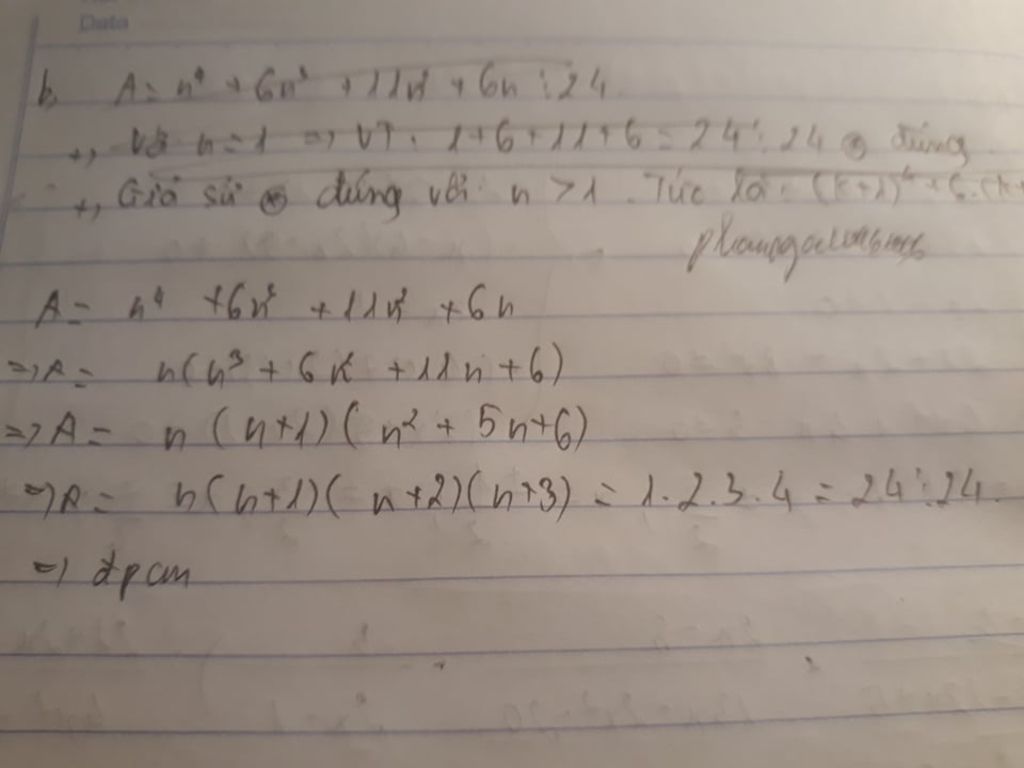 Date
b, A = n⁴ + 6n³ + 11n² + 6n ⋮ 24
+, Với n = 1 => VT: 1+6+11+6 = 24 ⋮ 24 đúng
+, Giả sử đúng với n > 1. Tức là: (k+1)⁴ + 6.(k+
A = n⁴ + 6n³ + 11n² + 6n
=> A = n(n³ + 6n² + 11n + 6)
=> A = n(n+1)(n² + 5n+6)
=> A = n(n+1)(n+2)(n+3) = 1.2.3.4 = 24 ⋮ 24.
=> đpcm